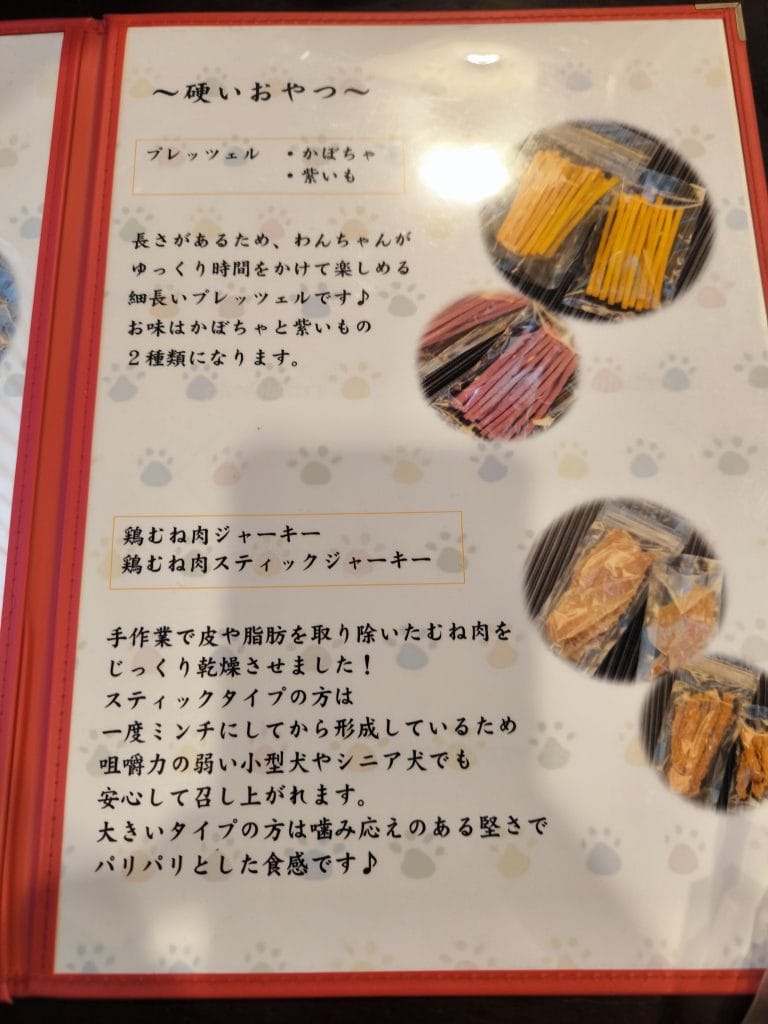 ～硬いおやつ～
プレッツェル ・かぼちゃ
・紫いも
長さがあるため、わんちゃんが
ゆっくり時間をかけて楽しめる
細長いプレッツェルです♪
お味はかぼちゃと紫いもの
２種類になります。
鶏むね肉ジャーキー
鶏むね肉スティックジャーキー
手作業で皮や脂肪を取り除いたむね肉を
じっくり乾燥させました！
スティックタイプの方は
一度ミンチにしてから形成しているため
咀嚼力の弱い小型犬やシニア犬でも
安心して召し上がれます。
大きいタイプの方は噛み応えのある堅さで
パリパリとした食感です♪